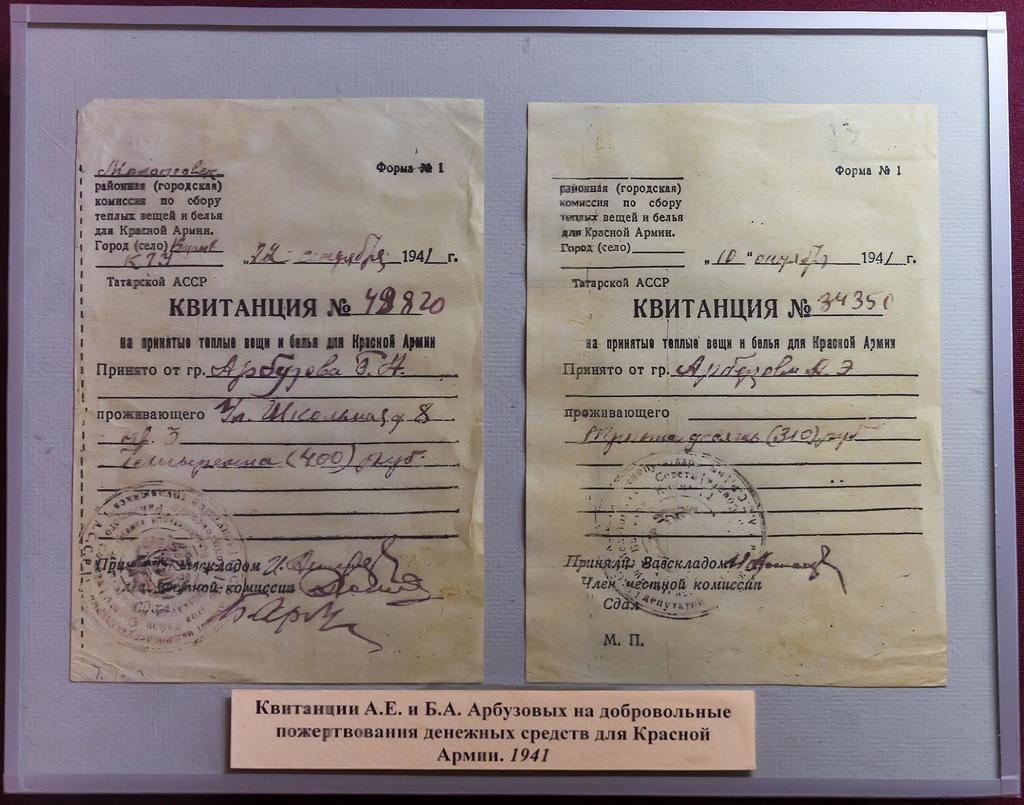 Молотовск
районная (городская)
комиссия по сбору
теплых вещей и белья
для Красной Армии.
Город (село)
Форма № 1
„22 194/ г.
Татарской АССР
КВИТАНЦИЯ № 48820
на принятые теплые вещи и белья для Красной Армии
Принято от гр. Арбузова
проживающего Ул. Школьная д. 8
кв. 3
Четыреста (400) руб.
Завскладом
комиссии
Сдал
районная (городская)
комиссия по сбору
теплых вещей и белья
для Красной Армии.
Город (село)
Форма № 1
„10“ октября 194/ г.
Татарской АССР
КВИТАНЦИЯ № 34350
на принятые теплые вещи и белья для Красной Армии
Принято от гр. Арбузова А. Э
проживающего
Триста десять (310) руб
Приняли: Завскладом
Член местной комиссии
Сдал
М. П.
Квитанции А.Е. и Б.А. Арбузовых на добровольные
пожертвования денежных средств для Красной
Армии. 1941